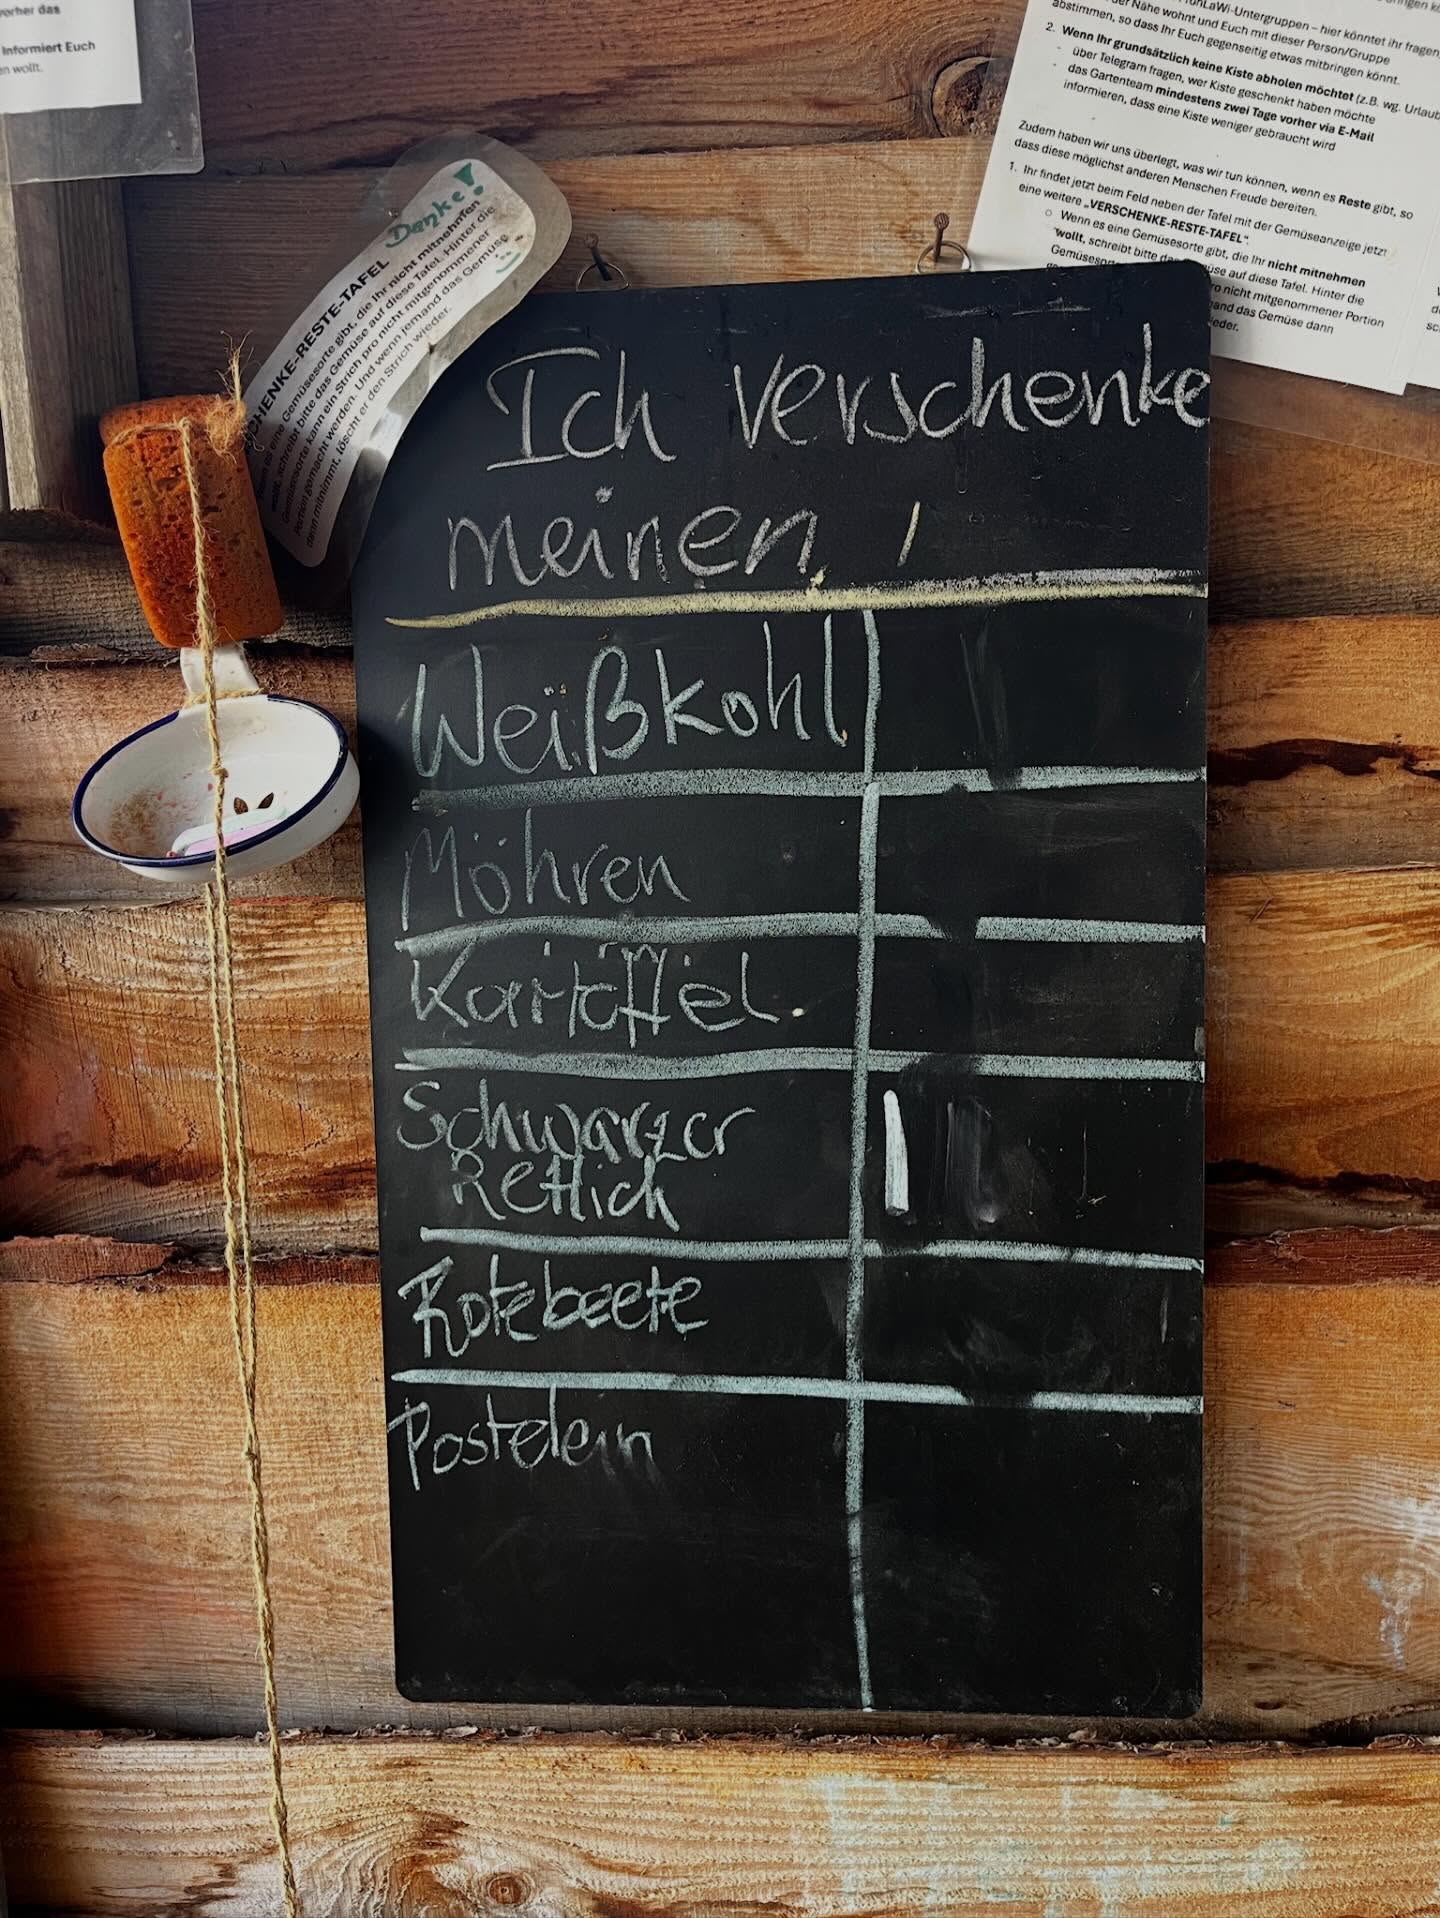 vorher das
Informiert Euch
en wollt.
FunLaWi-Untergruppen – hier könntet ihr fragen,
der Nähe wohnt und Euch mit dieser Person/Gruppe
abstimmen, so dass Ihr Euch gegenseitig etwas mitbringen könnt.
2. Wenn Ihr grundsätzlich keine Kiste abholen möchtet (z.B. wg. Urlaub
- über Telegram fragen, wer Kiste geschenkt haben möchte
- das Gartenteam mindestens zwei Tage vorher via E-Mail
informieren, dass eine Kiste weniger gebraucht wird
Zudem haben wir uns überlegt, was wir tun können, wenn es Reste gibt, so
dass diese möglichst anderen Menschen Freude bereiten.
1. Ihr findet jetzt beim Feld neben der Tafel mit der Gemüseanzeige jetzt
eine weitere „VERSCHENKE-RESTE-TAFEL“.
○ Wenn es eine Gemüsesorte gibt, die Ihr nicht mitnehmen
wollt, schreibt bitte das Gemüse auf diese Tafel. Hinter die
Gemüsesorte
ro nicht mitgenommener Portion
and das Gemüse dann
ieder.
Danke!
CHENKE-RESTE-TAFEL
eine Gemüsesorte gibt, die Ihr nicht mitnehmen
wollt, schreibt bitte das Gemüse auf diese Tafel. Hinter die
Gemüsesorte kann ein Strich pro nicht mitgenommener
Portion gemacht werden. Und wenn jemand das Gemüse
dann mitnimmt, löscht er den Strich wieder.
Ich verschenke
meinen
Weißkohl
Möhren
Kartoffel
Schwarzer
Rettich
Rotebeete
Postelein